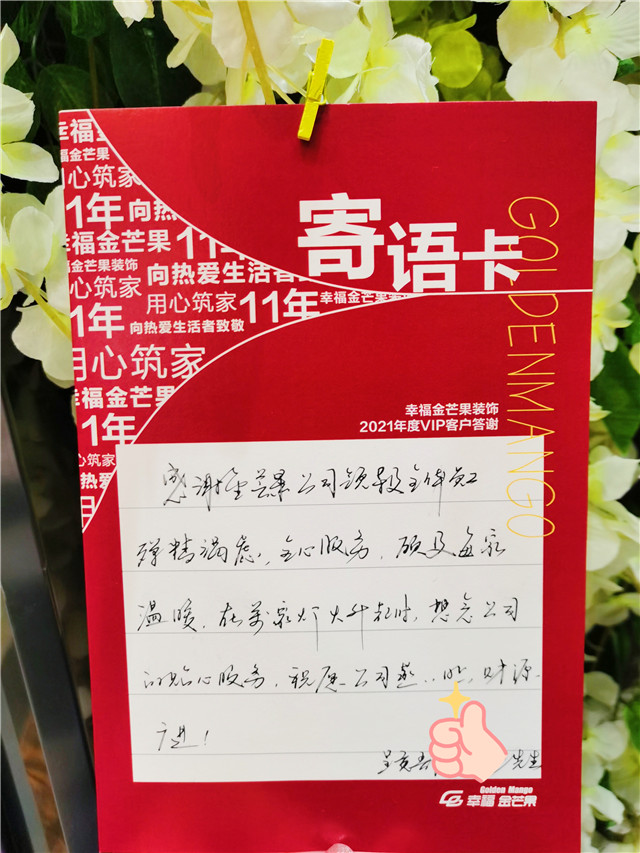 幸福金
福金芒果
用心筑家
11年 向热
幸福金芒果 11年
幸福金芒果装饰 向热爱生活者
用心筑家 用心筑家 11年 幸福金芒果装饰
11年 向热爱生活者致敬
用心筑家
幸福金芒果
11年
用心筑家
寄语卡
GOLDENMANGO
幸福金芒果装饰
2021年度VIP客户答谢
感谢金芒果公司领导全体员工
殚精竭虑，全心服务，顾及每家
温暖，在万家灯火升起时，想念公司
的贴心服务，祝愿公司蒸 财源
广进！
先生
Golden Mango
幸福 金芒果